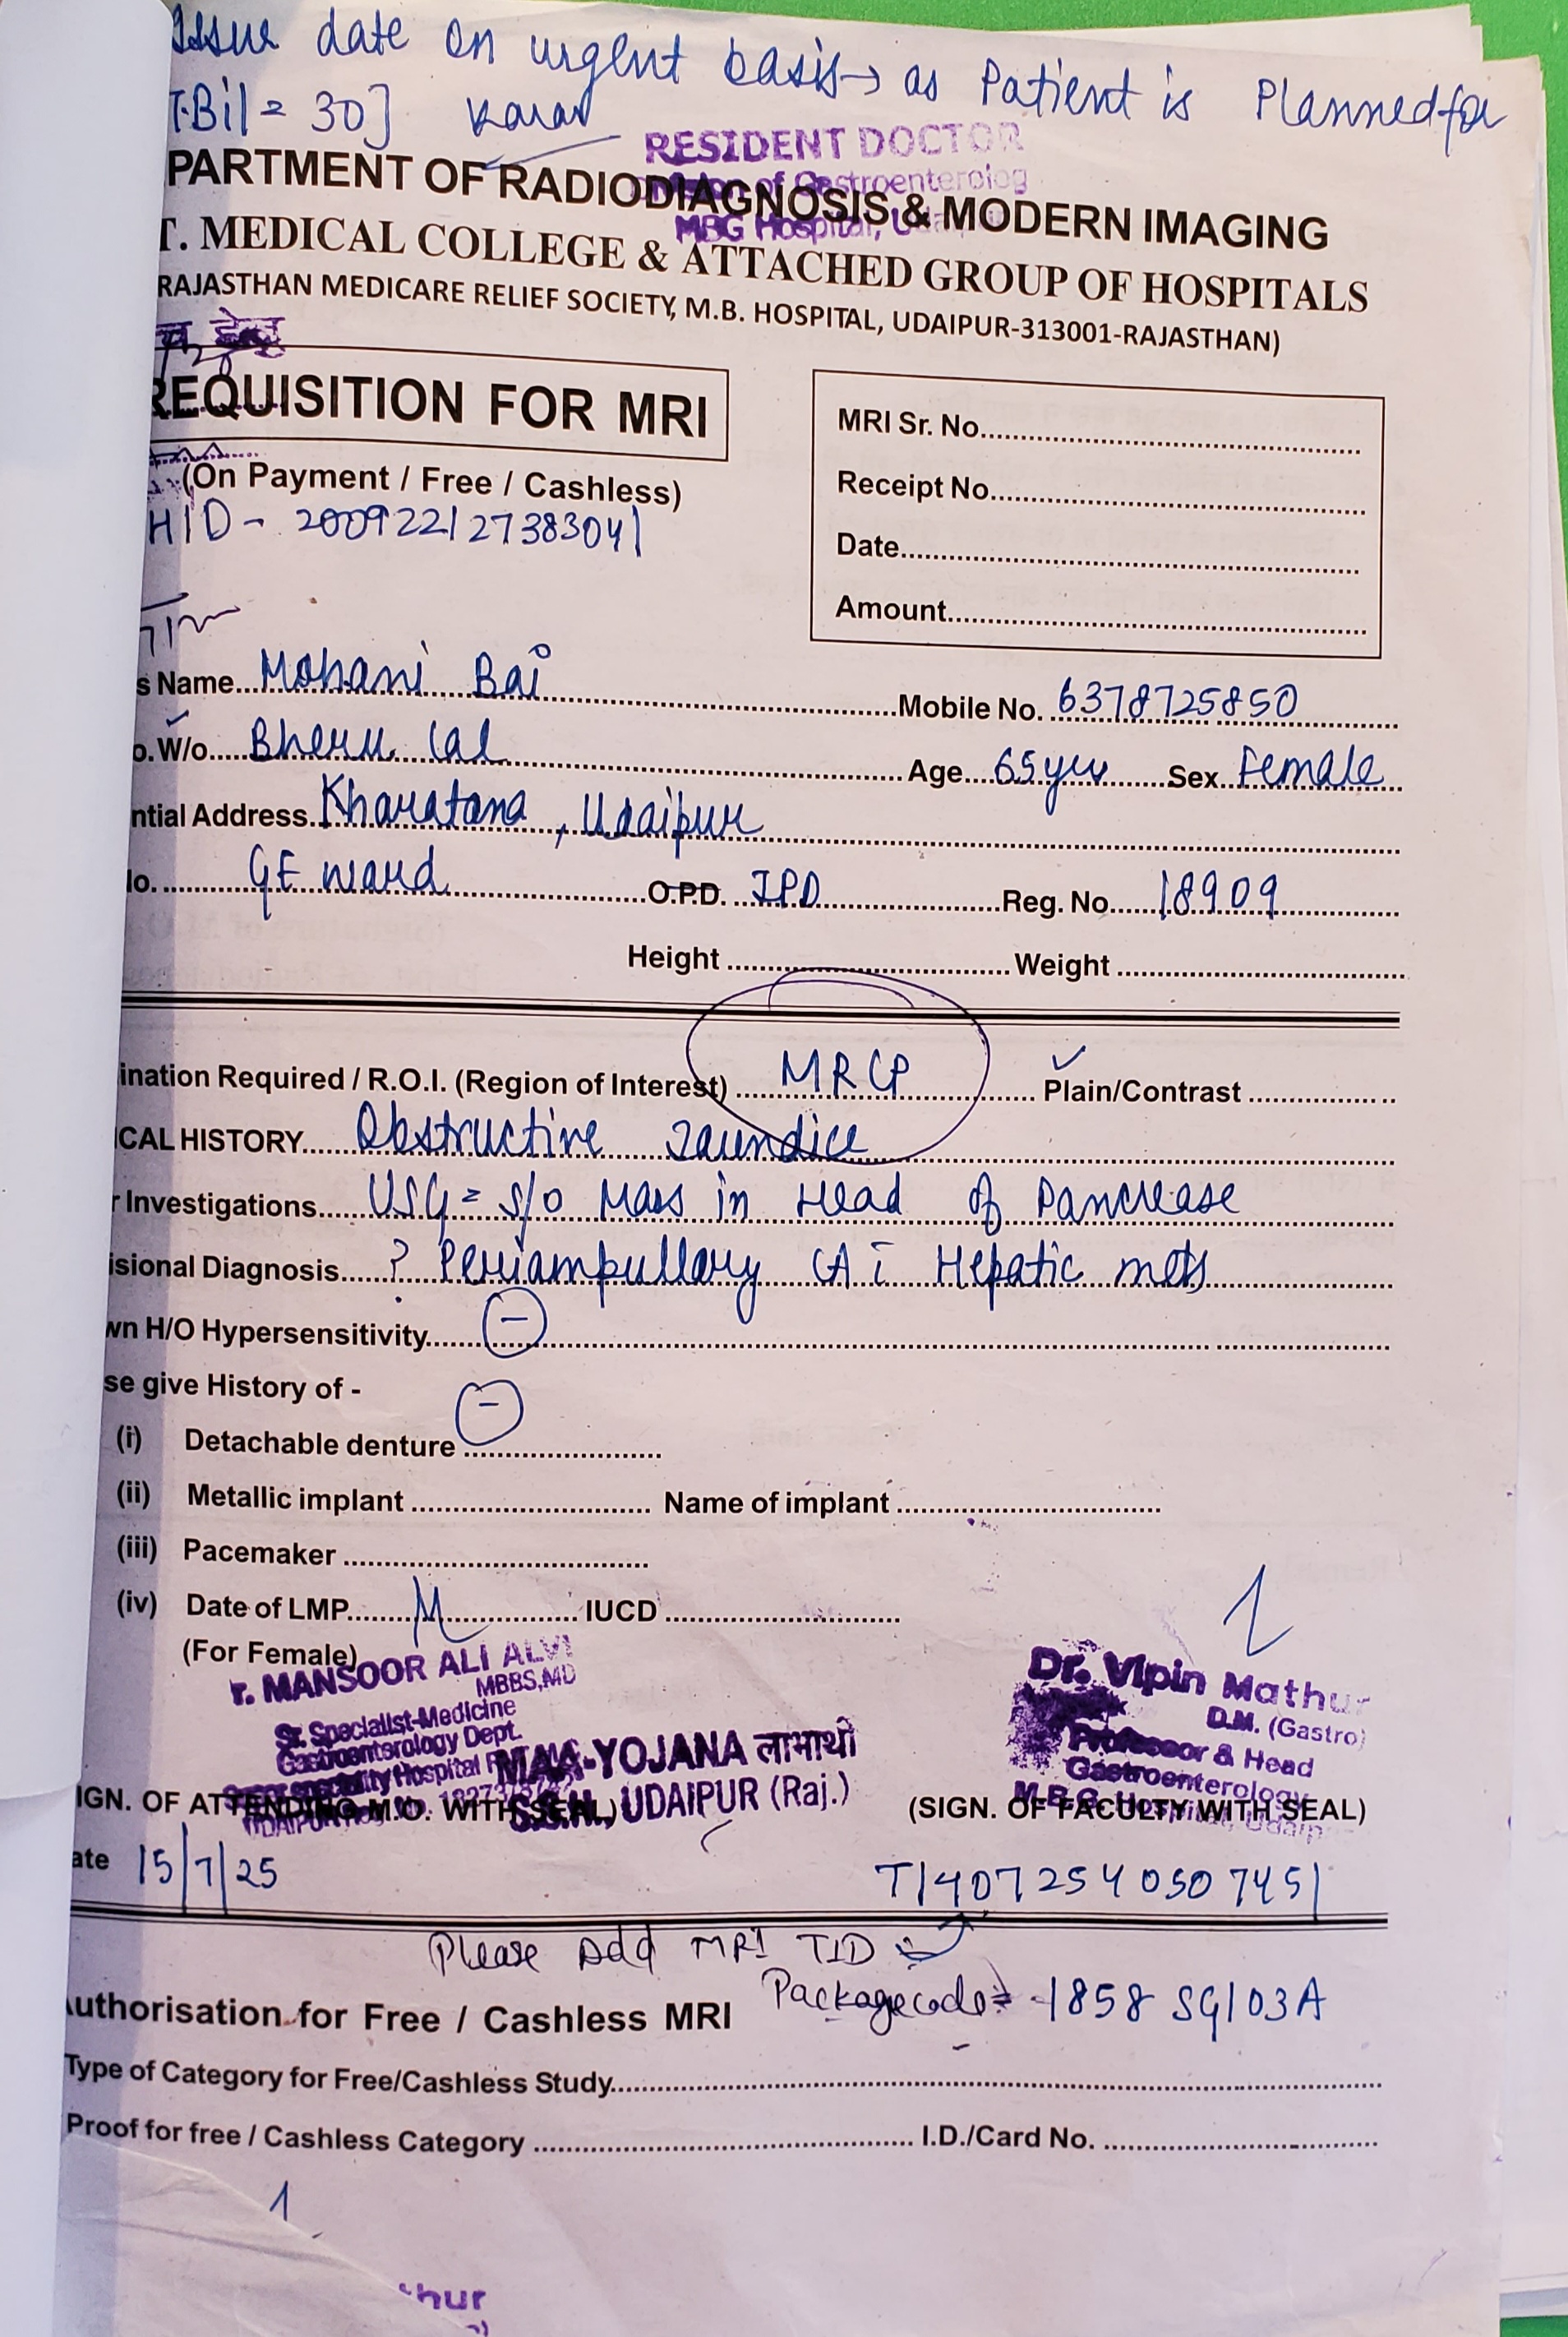 Issue date on urgent basis → as Patient is Planned for
T.Bil = 30] Karan
RESIDENT DOCTOR
Division of Gastroenterolog
MBG Hospital, Udai
PARTMENT OF RADIODIAGNOSIS & MODERN IMAGING
T. MEDICAL COLLEGE & ATTACHED GROUP OF HOSPITALS
RAJASTHAN MEDICARE RELIEF SOCIETY, M.B. HOSPITAL, UDAIPUR-313001-RAJASTHAN)
REQUISITION FOR MRI
(On Payment / Free / Cashless)
HID - 200922127383041
MRI Sr. No.
Receipt No.
Date
Amount
s Name Mohani Bai Mobile No. 6378725850
o. W/o Bheru Lal Age 65 yrs Sex Female
ntial Address Kharatana, Udaipur
No. GE ward O.P.D. IPD Reg. No. 18909
Height Weight
ination Required / R.O.I. (Region of Interest) MRCP ✓ Plain/Contrast
ICAL HISTORY Obstructive Jaundice
r Investigations USG = s/o Mass in Head of Pancrease
isional Diagnosis ? Periampullary CA c̄ Hepatic mets
wn H/O Hypersensitivity (-)
se give History of -
(i) Detachable denture (-)
(ii) Metallic implant Name of implant
(iii) Pacemaker
(iv) Date of LMP M IUCD
(For Female)
r. MANSOOR ALI ALVI
MBBS,MD
Sr. Specialist-Medicine
Gastroenterology Dept.
MAA-YOJANA लाभार्थी
S.S.H., UDAIPUR (Raj.)
Dr. Vipin Mathur
D.M. (Gastro)
Professor & Head
Gastroenterology
M.B.G. Hospital, Udaip
IGN. OF ATTENDING M.O. WITH SEAL) (SIGN. OF FACULTY WITH SEAL)
ate 15/7/25 T14072540507451
Please Add MRI TID
Package code = 1858 SG103A
Authorisation for Free / Cashless MRI
Type of Category for Free/Cashless Study
Proof for free / Cashless Category I.D./Card No.
thur